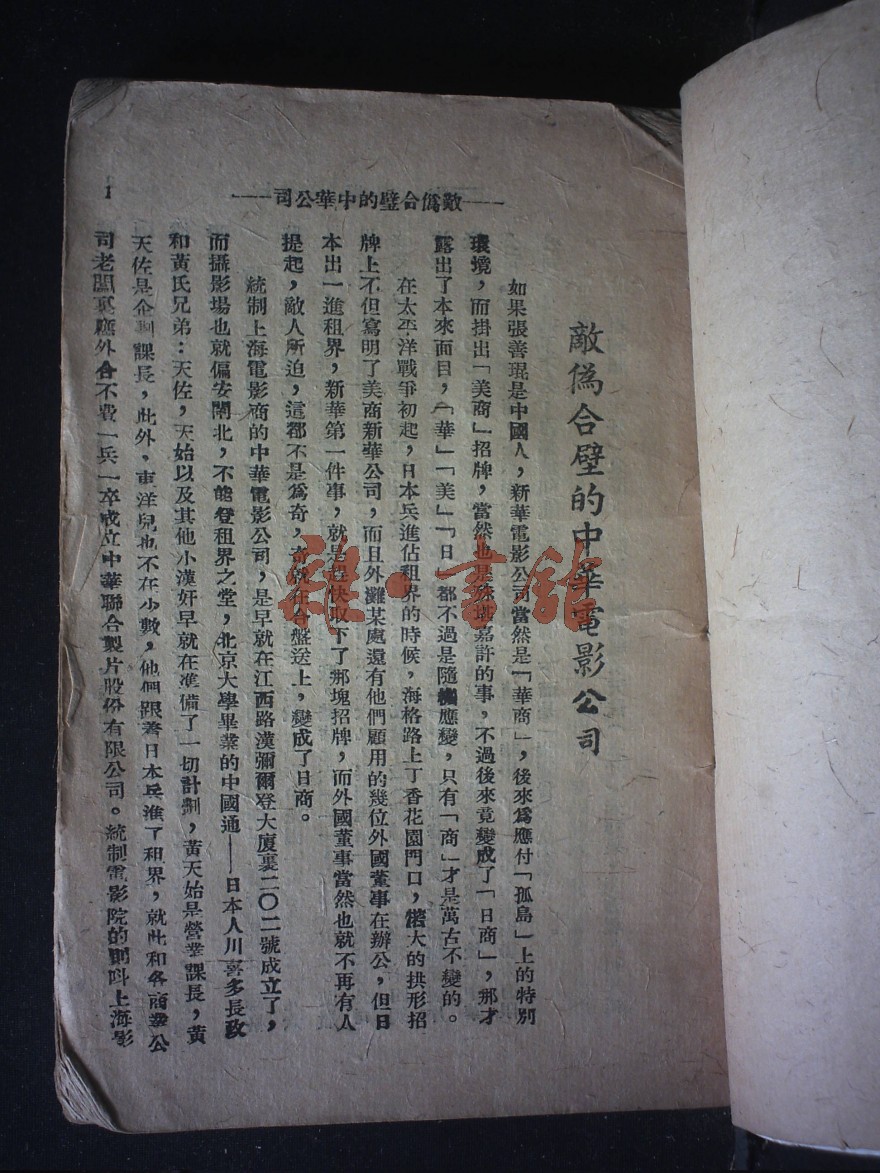 ——敵偽合璧的中華公司——
1
敵偽合璧的中華電影公司
如果張善琨是中國人，新華電影公司當然是「華商」，後來爲應付「孤島」上的特別
環境，而掛出「美商」招牌，當然也是 嘉許的事，不過後來竟變成了「日商」，那才
露出了本來面目，「華」「美」「日」都不過是隨機應變，只有「商」才是萬古不變的。
在太平洋戰爭初起，日本兵進佔租界的時候，海格路上丁香花園門口，偌大的拱形招
牌上不但寫明了美商新華公司，而且外灘某處還有他們顧用的幾位外國董事在辦公，但日
本出一進租界，新華第一件事，就是趕快取下了那塊招牌，而外國董事當然也就不再有人
提起，敵人所迫，這都不是爲奇，奇就在合盤送上，變成了日商。
統制上海電影商的中華電影公司，是早就在江西路漢彌爾登大廈裏二〇二號成立了，
而攝影場也就偏安閘北，不能登租界之堂，北京大學畢業的中國通——日本人川喜多長政
和黃氏兄弟：天佐，天始以及其他小漢奸早就在準備了一切計劃，黃天始是營業課長，黃
天佐是企劃課長，此外，東洋兒也不在小數，他們跟著日本兵進了租界，就此和各商業公
司老闆裏應外合不費一兵一卒成立中華聯合製片股份有限公司。統制電影院的則叫上海影
雜·書館